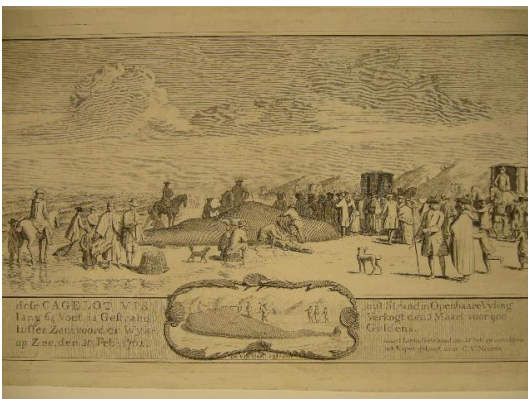 deze CAGELOT VIS
lang 64 Voet, is Gestrand
tussen Zantvoord, en Wyk
op Zee, den 20 Feb: 1762.
uit Strand in Openbaare Vyling
Verkogt den 1 Maart voor 900
Guldens.
door C. V. Noorde